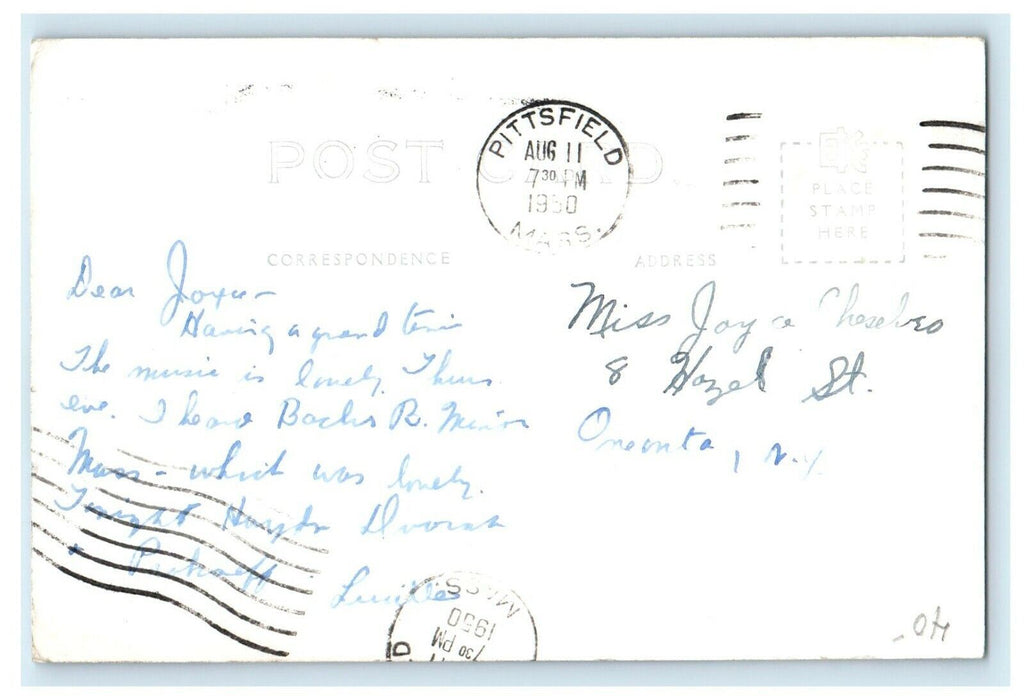 POST CARD
PITTSFIELD
AUG 11
7 30 PM
1950
MASS.
PLACE
STAMP
HERE
CORRESPONDENCE
ADDRESS
Dear Joyce -
Having a grand time
The music is lovely. Thurs.
eve. I heard Bachs B. Minor
Mass - which was lovely.
Tonight Haydn Dvorak
+ Lucille
Miss Joyce Chesebro
8 Hazel St.
Oneonta, N.Y.
MASS
1950
7 30 PM
11
D